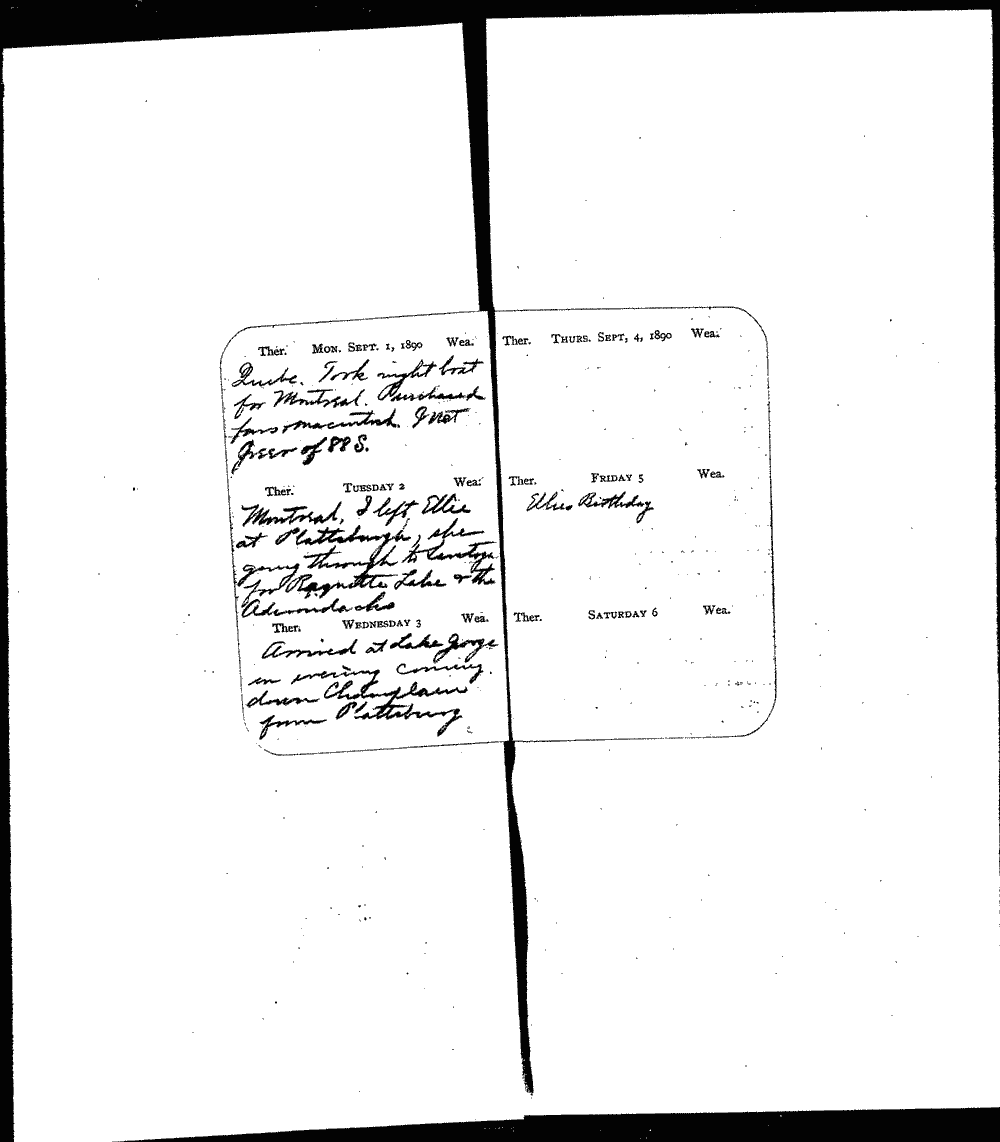 Ther. MON. SEPT. 1, 1890 Wea.
Quebec. Took night boat
for Montreal. Purchased
furs & macintosh. I met
Greer of 88 S.
Ther. TUESDAY 2 Wea.
Montreal, I left Ellie
at Plattsburgh, she
going through to Saratoga
for Raquette Lake & the
Adirondacks
Ther. WEDNESDAY 3 Wea.
Arrived at Lake George
in evening coming
down Champlain
from Plattsburg
Ther. THURS. SEPT, 4, 1890 Wea.
Ther. FRIDAY 5 Wea.
Ellies Birthday
Ther. SATURDAY 6 Wea.